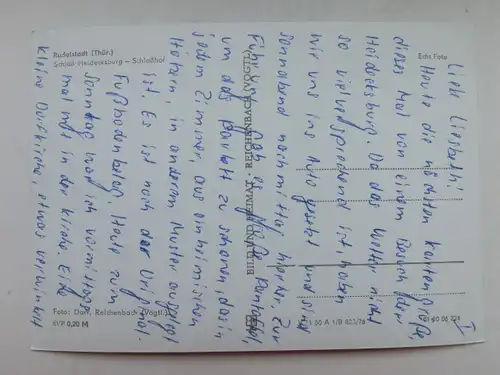 Rudolstadt (Thür.)
Schloß Heidecksburg – Schloßhof
Echt Foto
I
Liebe Liesbeth!
Heute die nächsten Kartengrüße,
dieses Mal von einem Besuch der
Heidecksburg. Da das Wetter nicht
so vielversprechend ist haben
wir uns ins Auto gesetzt und sind
sonnabend nachmittag hierher. Zur
Führung gab es große Pantoffel,
um das Parkett zu schonen das in
jedem Zimmer, aus einheimischen
Hölzern, in anderem Muster aufgelegt
ist. Es ist noch der Original-
Fußbodenbelag. Heute zum
Sonntag war ich vormittag
mal mit in der Kirche. Eine
kleine Dorfkirche, etwas verwinkelt
BILD UND HEIMAT · REICHENBACH (VOGTL)
Foto: Darr, Reichenbach (Vogtl.)
EVP 0,20 M